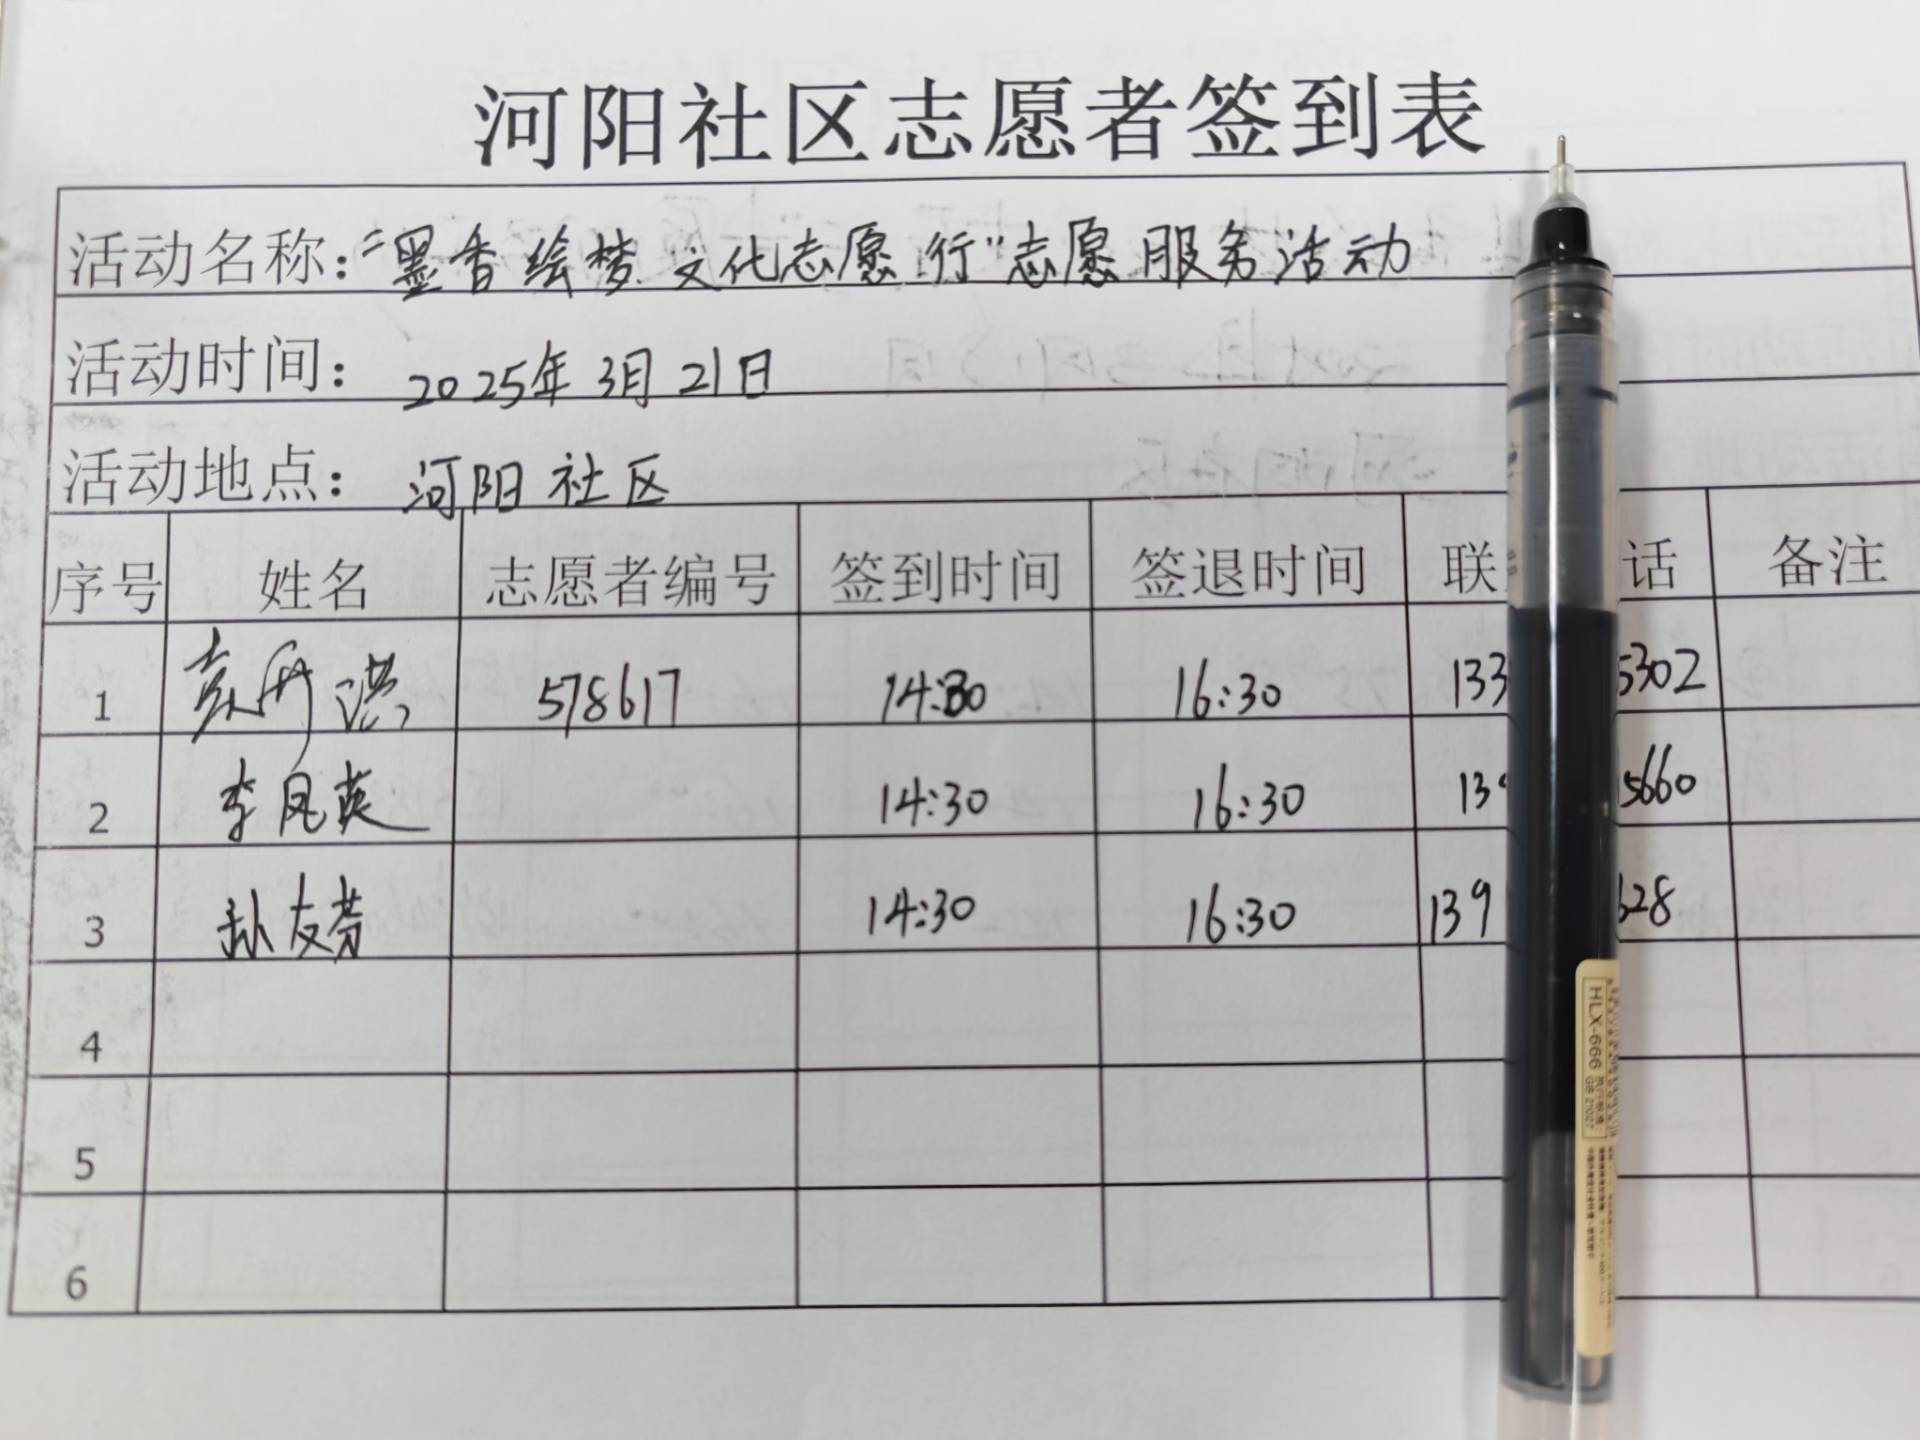 河阳社区志愿者签到表
活动名称：“墨香绘梦 文化志愿行”志愿服务活动
活动时间： 2025年3月21日
活动地点： 河阳社区
序号 姓名 志愿者编号 签到时间 签退时间 联 话 备注
1 袁丹洪 578617 14:30 16:30 133 5302
2 李凤英 14:30 16:30 13 5660
3 孙友芬 14:30 16:30 139 628
4
5
6
HLX-666
GB 21027